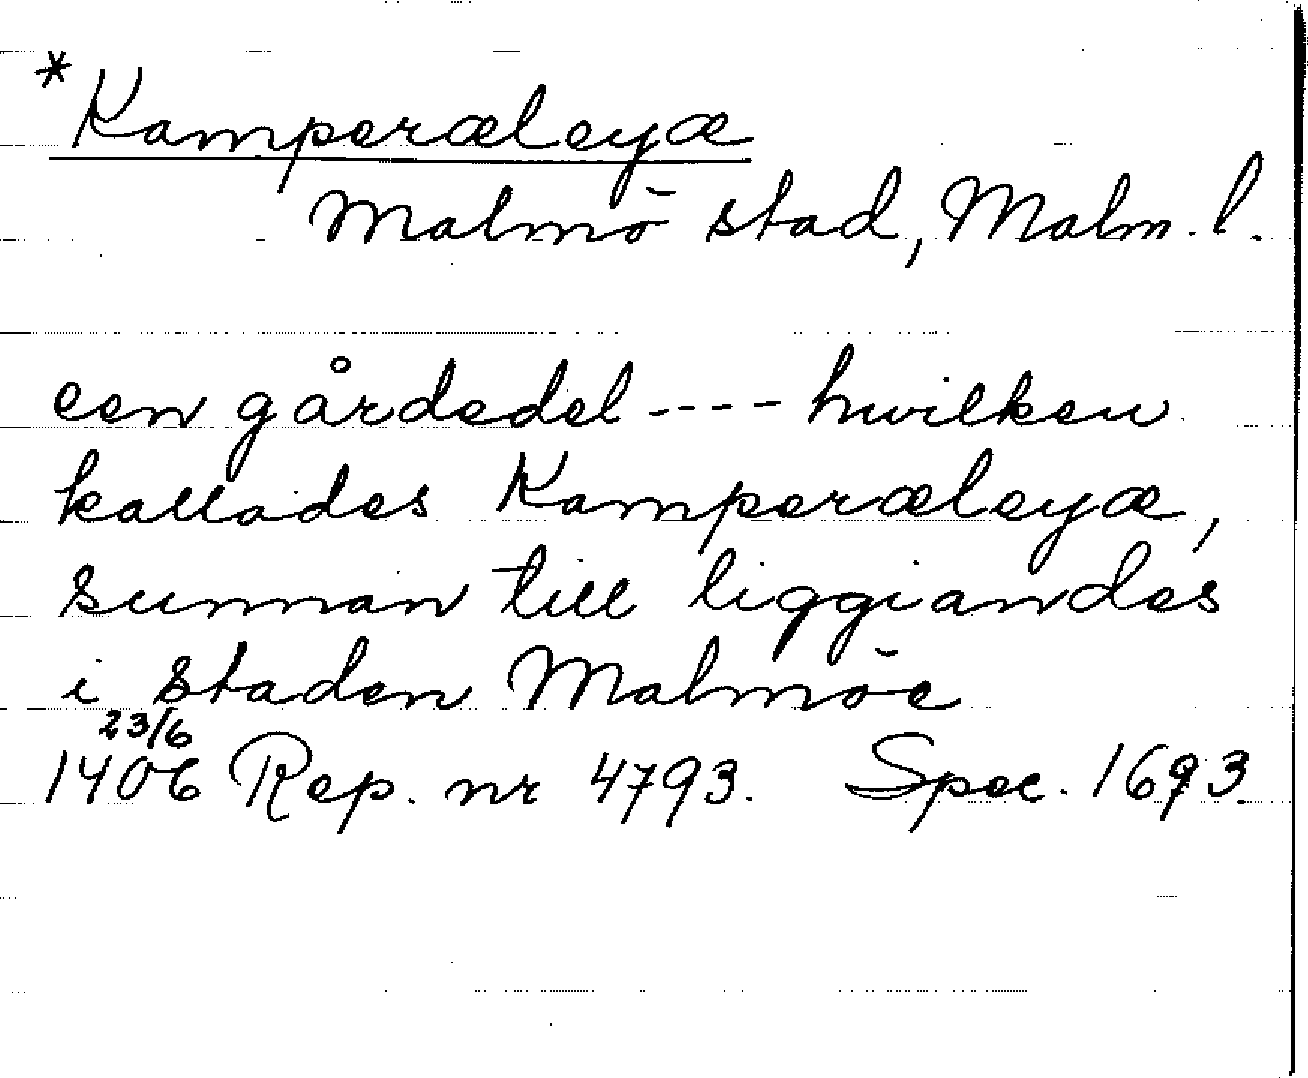 *Kamperæleyæ
Malmö stad, Malm. l.
een gårdedel ---- hwilken
kallades Kamperæleyæ,
sunnan till liggiandes
i staden Malmöe
23/6
1406 Rep. nr 4793. Spec. 1693